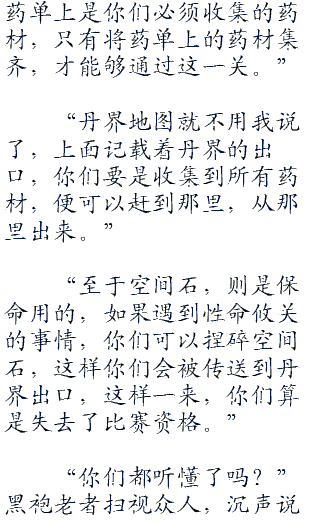 药单上是你们必须收集的药
材，只有将药单上的药材集
齐，才能够通过这一关。”
“丹界地图就不用我说
了，上面记载着丹界的出
口，你们要是收集到所有药
材，便可以赶到那里，从那
里出来。”
“至于空间石，则是保
命用的，如果遇到性命攸关
的事情，你们可以捏碎空间
石，这样你们会被传送到丹
界出口，这样一来，你们算
是失去了比赛资格。”
“你们都听懂了吗？”
黑袍老者扫视众人，沉声说